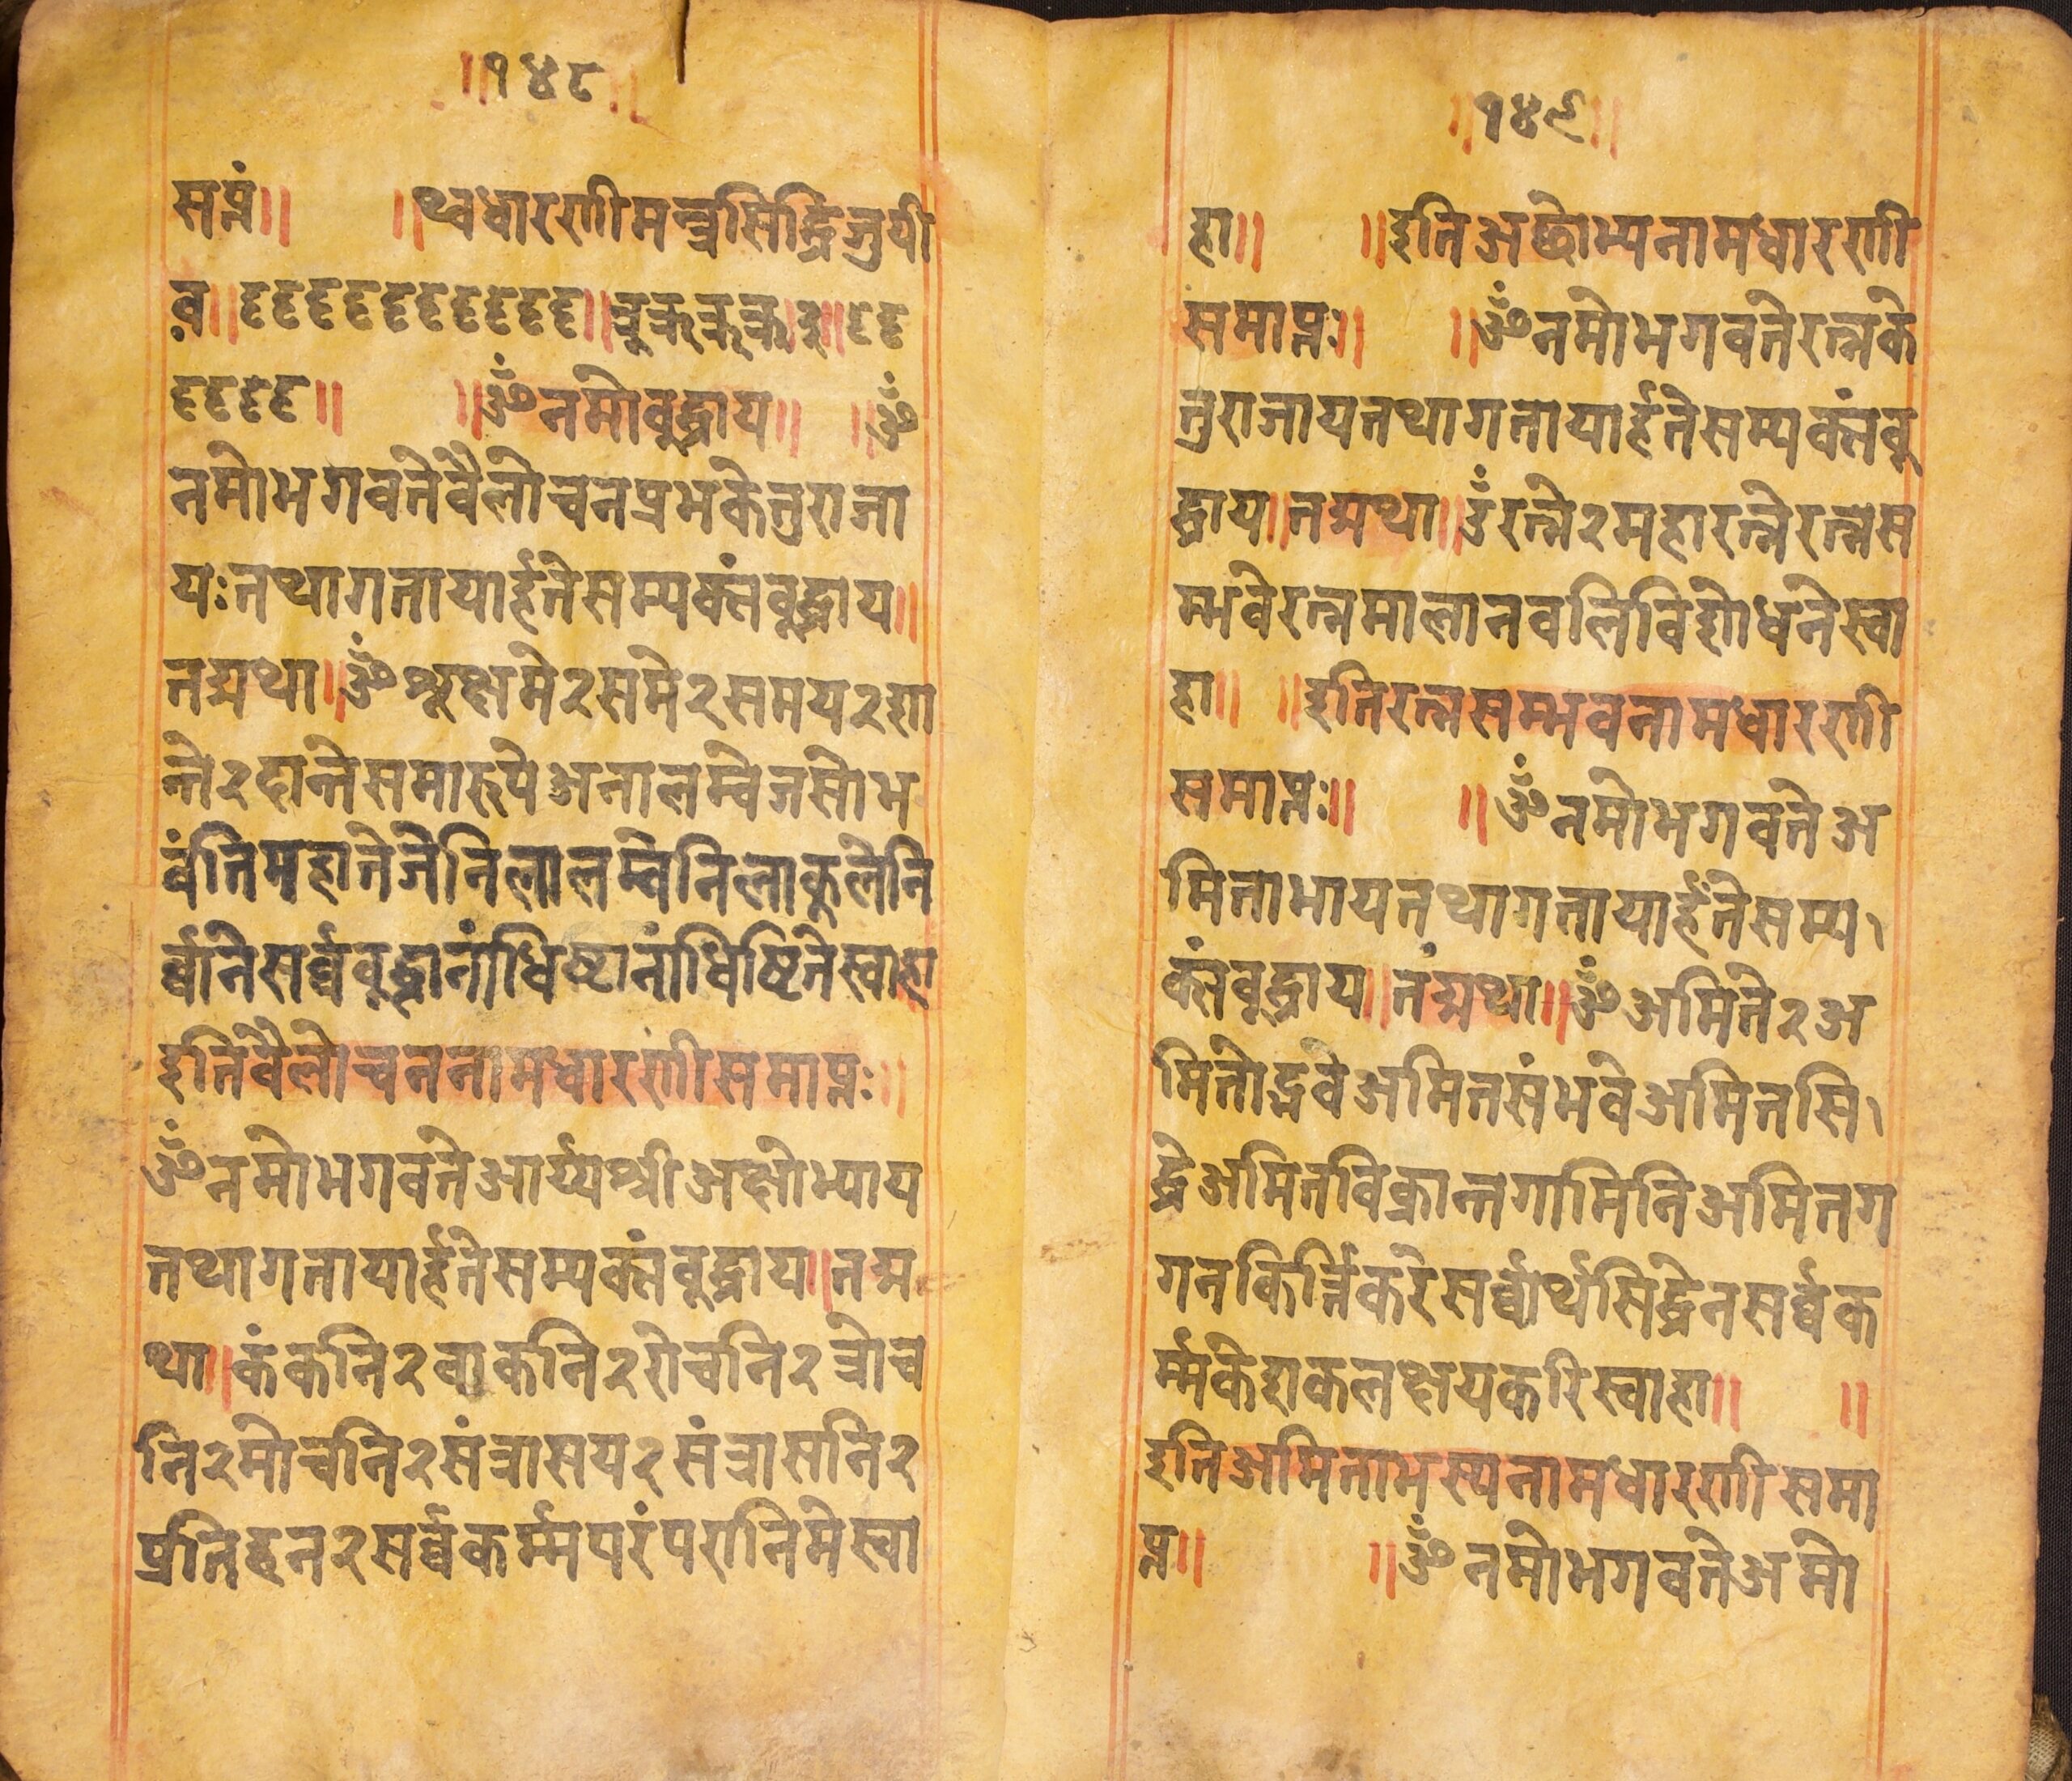 ॥१४८॥
सप्तं॥ ॥थ्वधारणीमन्त्रसिद्धिजुयी
व॥ ॥
॥ ॥ॐनमोबुद्धाय॥ ॥ॐ
नमोभगवतेवैलोचनप्रभकेतुराजा
यःतथागतायार्हतेसम्यक्संबूद्धाय॥
तद्यथा॥ॐश्लूक्ष्मे२समे२समय२शा
न्ते२दान्तेसमारूपेअनालम्वेजसोभ
वंतिमहातेजेनिलालम्वेनिलाकुलेनि
र्व्वानेसर्व्वबुद्धानांधिष्टानांधिष्टितेस्वाहा
इतिवैलोचननामधारणीसमाप्तः॥
ॐनमोभगवतेआर्य्यश्रीअक्षोभ्याय
तथागतायार्हतेसम्यक्संबूद्धाय॥तद्य
था॥कंकनि२वाकनि२रोचनि२त्रोच
नि२मोचनि२संत्रासय२संत्रासनि२
प्रतिहन२सर्व्वकर्म्मपरंपरानिमेस्वा
॥१४९॥
हा॥ ॥इतिअछोभ्यनामधारणी
समाप्तः॥ ॥ॐनमोभगवतेरत्नके
तुराजायतथागतायार्हतेसम्यक्संबू
द्धाय॥तद्यथा॥उँरत्ने२महारत्नेरत्नस
म्भवेरत्नमालानवलिविशोधनेस्वा
हा॥ ॥इतिरत्नसम्भवनामधारणी
समाप्तः॥ ॥ॐनमोभगवतेअ
मिताभायतथागतायार्हंतेसम्य।
क्संबूद्धाय॥तंद्यथा॥ॐअमिते२अ
मितोद्भवेअमितसंभवेअमितसि।
द्धेअमितविक्रान्तगामिनिअमितग
गनकिर्त्तिकरेसर्व्वार्थसिद्धेनसर्व्वक
र्म्मकेशकलक्षयकरिस्वाहा॥ ॥
इतिअमिताभस्यनामधारणीसमा
प्त॥ ॥ॐनमोभगवतेअमो